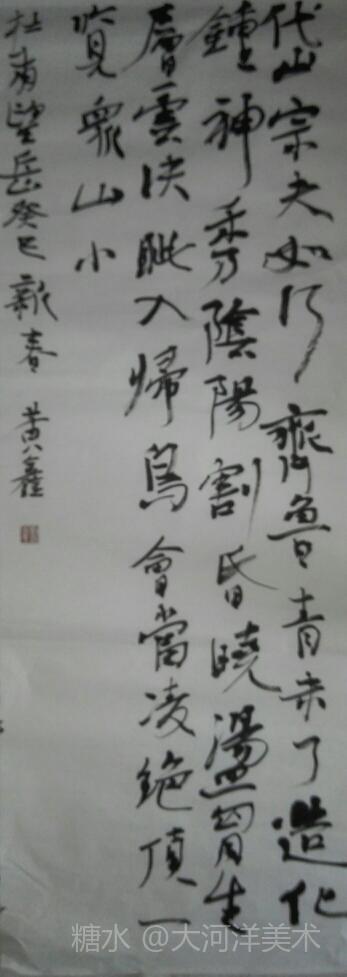 岱山宗夫如何齊魯青未了造化
鍾神秀陰陽割昏曉盪胷生
層雲決眦入歸鳥會當凌絕頂一
覽衆山小
杜甫望岳癸巳新春 黄鑫
糖水 @大河洋美术